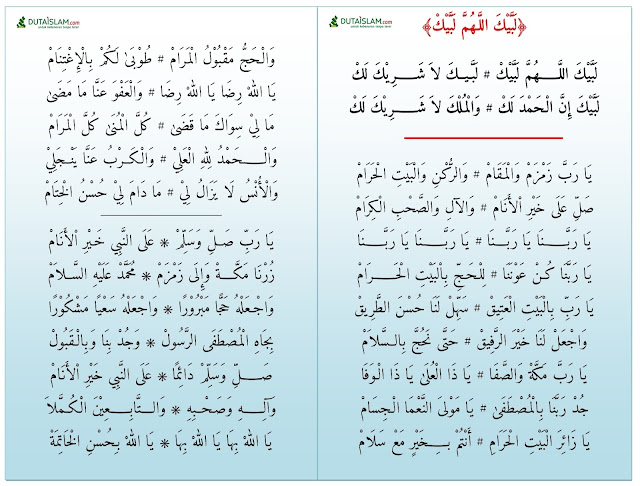 DUTAISLAM.com
﴿لَبَّيْكَ اللَّهُمَّ لَبَّيْكَ﴾
لَبَّيْكَ اللَّهُمَّ لَبَّيْكَ # لَبَّيْكَ لاَ شَرِيْكَ لَكَ
لَبَّيْكَ إِنَّ الْحَمْدَ لَكْ # وَالْمُلْكَ لاَ شَرِيْكَ لَكَ
يَا رَبَّ زَمْزَمَ وَالْمَقَامْ # وَالرُّكْنِ وَالْبَيْتِ الْحَرَامْ
صَلِّ عَلَى خَيْرِ الْأَنَامْ # وَالآلِ وَالصَّحْبِ الْكِرَامْ
يَا رَبَّنَا يَا رَبَّنَا # يَا رَبَّنَا يَا رَبَّنَا
يَا رَبَّنَا كُنْ عَوْنَنَا # لِلْحَجِّ بِالْبَيْتِ الْحَرَامْ
يَا رَبِّ بِالْبَيْتِ الْعَتِيْقْ # سَهِّلْ لَنَا حُسْنَ الطَّرِيْقْ
وَاجْعَلْ لَنَا خَيْرَ الرَّفِيْقْ # حَتَّى نَحُجَّ بِالسَّلَامْ
يَا رَبَّ مَكَّةْ وَالصَّفَا # يَا ذَا الْعُلَىٰ يَا ذَا الْوَفَا
جُدْ رَبَّنَا بِالْمُصْطَفَىٰ # يَا مَوْلِيَ النَّعْمَا الْجِسَامْ
يَا زَائِرَ الْبَيْتِ الْحَرَامِ # أَنْتُمْ بِخَيْرٍ مَعْ سَلَامْ
DUTAISLAM.com
وَالْحَجُّ مَقْبُولُ الْمَرَامْ # طُوْبَىٰ لَكُمْ بِالْإِغْتِنَامْ
يَا اللهْ رِضَا يَا اللهْ رِضَا # وَالْعَفْوَ عَنَّا مَا مَضَىٰ
مَا لِيْ سِوَاكَ مَا قَضَىٰ # كُلَّ الْمُنَىٰ كُلَّ الْمَرَامْ
وَالْحَمْدُ لِلهِ الْعَلِيْ # وَالْكَرْبُ عَنَّا يَنْجَلِيْ
وَالْأُنْسُ لَا يَزَالُ لِيْ # مَا دَامَ لِيْ حُسْنُ الْخِتَامْ
يَا رَبِّ صَلِّ وَسَلِّمْ ❋ عَلَى النَّبِي خَيْرِ الْأَنَامْ
زُرْنَا مَكَّةْ وَإِلَى زَمْزَمْ ❋ مُحَمَّدْ عَلَيْهِ السَّلَامْ
وَاجْعَلْهُ حَجًّا مَبْرُورًا ❋ وَاجْعَلْهُ سَعْيًا مَشْكُورًا
بِجَاهِ الْمُصْطَفَى الرَّسُولْ ❋ وَجُدْ بِنَا وَبِالْقَبُولْ
صَلِّ وَسَلِّمْ دَائِمًا ❋ عَلَى النَّبِي خَيْرِ الْأَنَامْ
وَآلِهِ وَصَحْبِهِ ❋ وَالتَّابِعِيْنَ الْكُمَّلَا
يَا اللهُ بِهَا يَا اللهُ بِهَا ❋ يَا اللهُ بِحُسْنِ الْخَاتِمَةْ